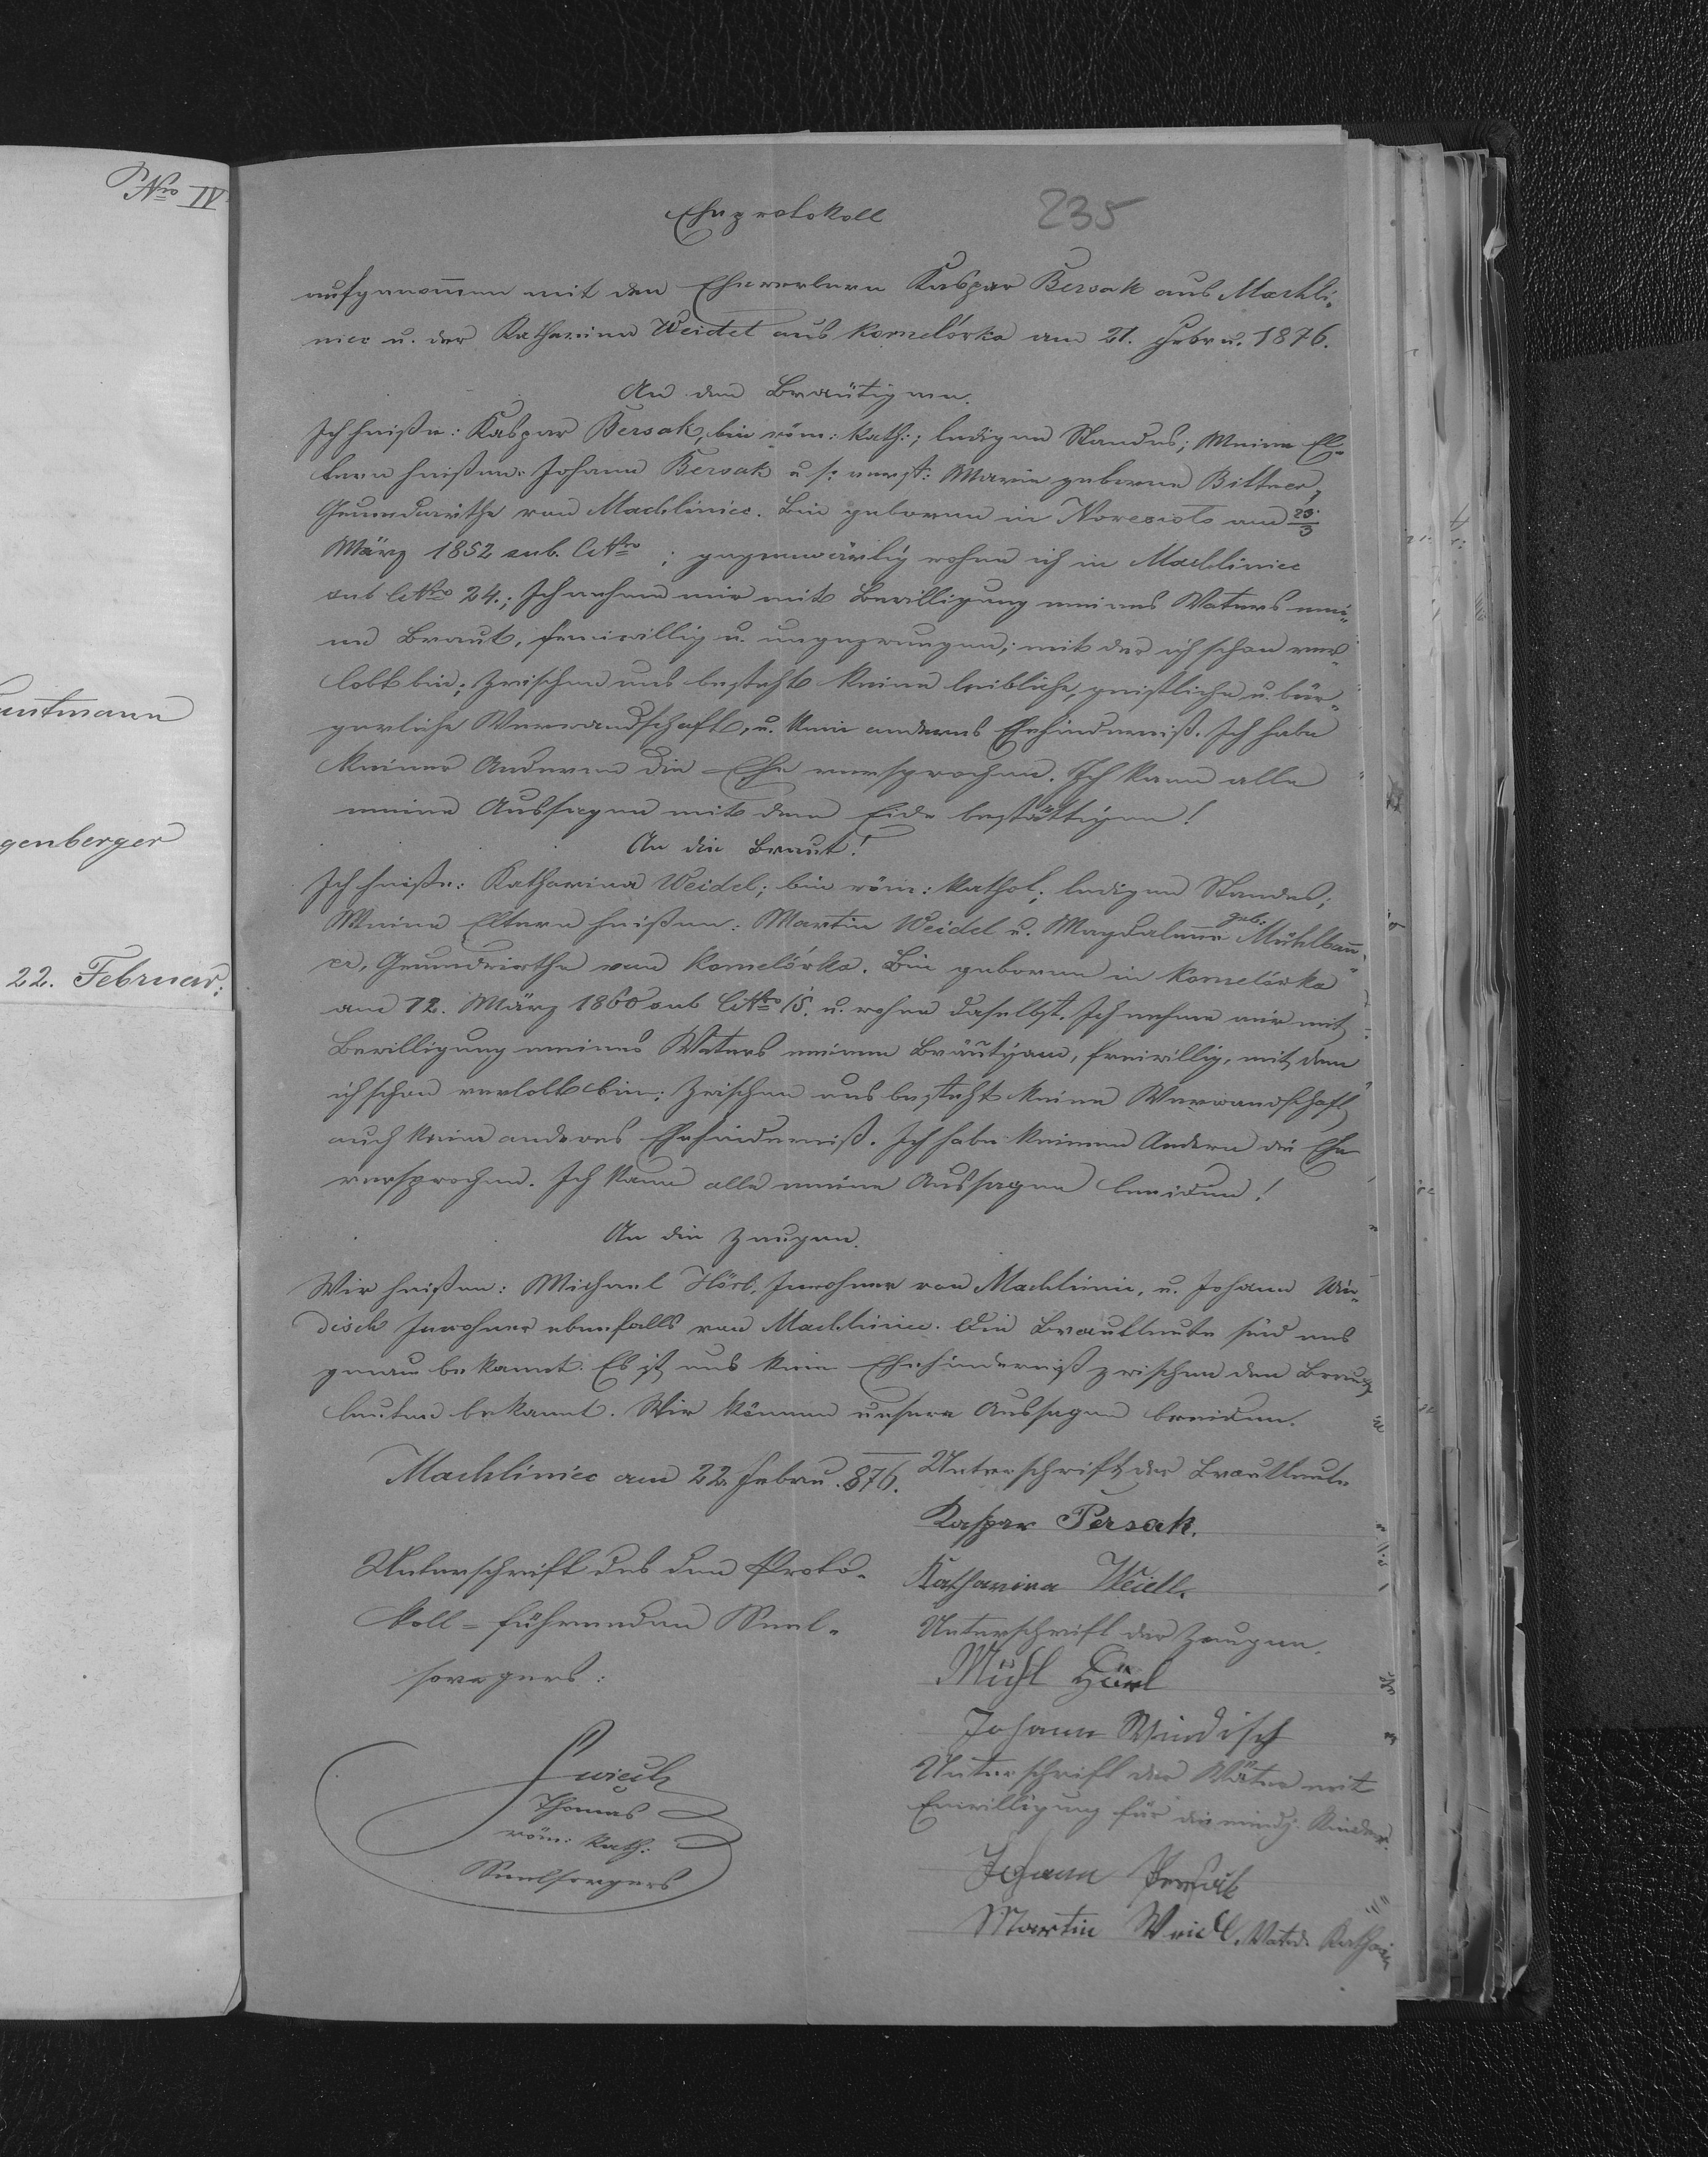 Nro IV
untmann
genberger
22. Februar:
Eheprotokoll
235
aufgenommen mit den Ehewerbern Kaspar Bersak aus Machli„
niec u. der Katharina Weidel aus Kornelówka am 21. Febru. 1876.
An den Bräutigam.
Ich heiße: Kaspar Bersak, bin röm: kath:; ledigen Standes; Meine El„
tern heißen: Johann Bersak u. s: verst: Maria geborne Bittner,
Grundwirthe von Machliniec. Bin geboren in Nowesioło am
März 1852 sub. CNro ; gegenwärtig wohne ich in Machliniec
sub CNro 24.; Ich nehme mir mit Bewilligung meines Vaters mei„
ne Braut, freiwillig u. ungezwungen; mit der ich schon ver„
lobt bin; zwischen uns besteht keine leibliche, geistliche u. bür„
gerliche Verwandschaft, u. kein anderes Ehehinderniß. Ich habe
keiner Anderen die Ehe versprochen. Ich kann alle
meine Aussagen mit dem Eide bestättigen!
An die Braut!
Ich heiße: Katharina Weidel; bin röm: kathol; ledigen Standes;
Meine Eltern heißen: Martin Weidel u. Magdalena geb: Mühlbau„
er, Grundwirthe von Kornelówka. Bin geboren in Kornelówka
am 12. März 1860 sub CNro 15. u. wohne daselbst. Ich nehme mir mit
Bewilligung meines Vaters meinen Bräutigam, freiwillig, mit dem
ich schon verlobt bin; Zwischen uns besteht keine Verwandschaft,
auch kein anderes Ehehinderniß. Ich habe keinem Andern die Ehe
versprochen. Ich kann alle meine Aussagen beeiden!
An die Zeugen.
Wir heißen: Michael Hörl, Inwohner von Machliniec, u. Johann Win„
disch Inwohner ebenfalls von Machliniec. Die Brautleute sind uns
genau bekannt. Es ist uns kein Ehehinderniß zwischen den Braut„
leuten bekannt. Wir können unsere Aussagen beeiden.
Machliniec am 22. Febru. 876.
Unterschrift der Brautleute
Kaspar Persak.
Unterschrift des den Proto„
Katharina Weidl.
koll-führenden Seel„
Unterschrift der Zeugen.
sorgers:
Michl Hörl
Johann Windisch
Unterschrift der Väter mit
Einwilligung für die mindj. Kinder.
Thomas
röm: kath:
Seelsorgers
Johann Persak
Martin Weidl, Vater d. Kathari